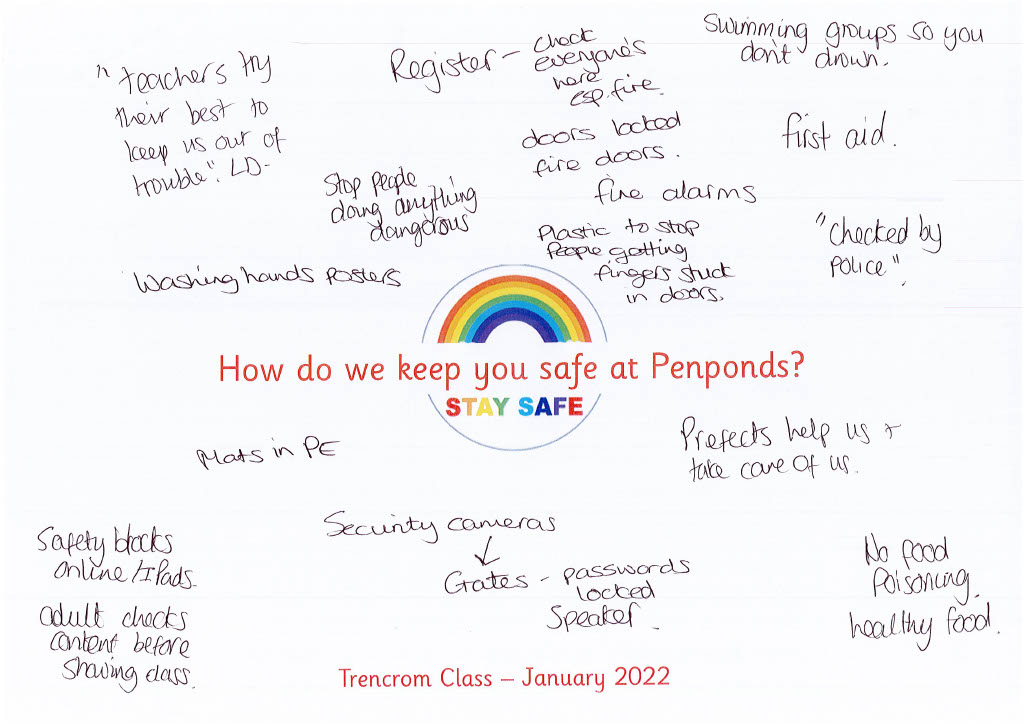 "teachers try
their best to
keep us out of
trouble". LD-
Register - check
everyone's
here
esp. fire.
Swimming groups so you
don't drown.
doors locked
fire doors.
first aid.
Stop people
doing anything
dangerous
fire alarms
Plastic to stop
people getting
fingers stuck
in doors.
"checked by
police".
Washing hands posters
How do we keep you safe at Penponds?
STAY SAFE
Mats in PE
Prefects help us +
take care of us.
Security cameras
↓
Gates - passwords
locked
Speaker
Safety blocks
online/IPads.
adult checks
content before
sharing class.
No food
poisoning.
healthy food.
Trencrom Class – January 2022